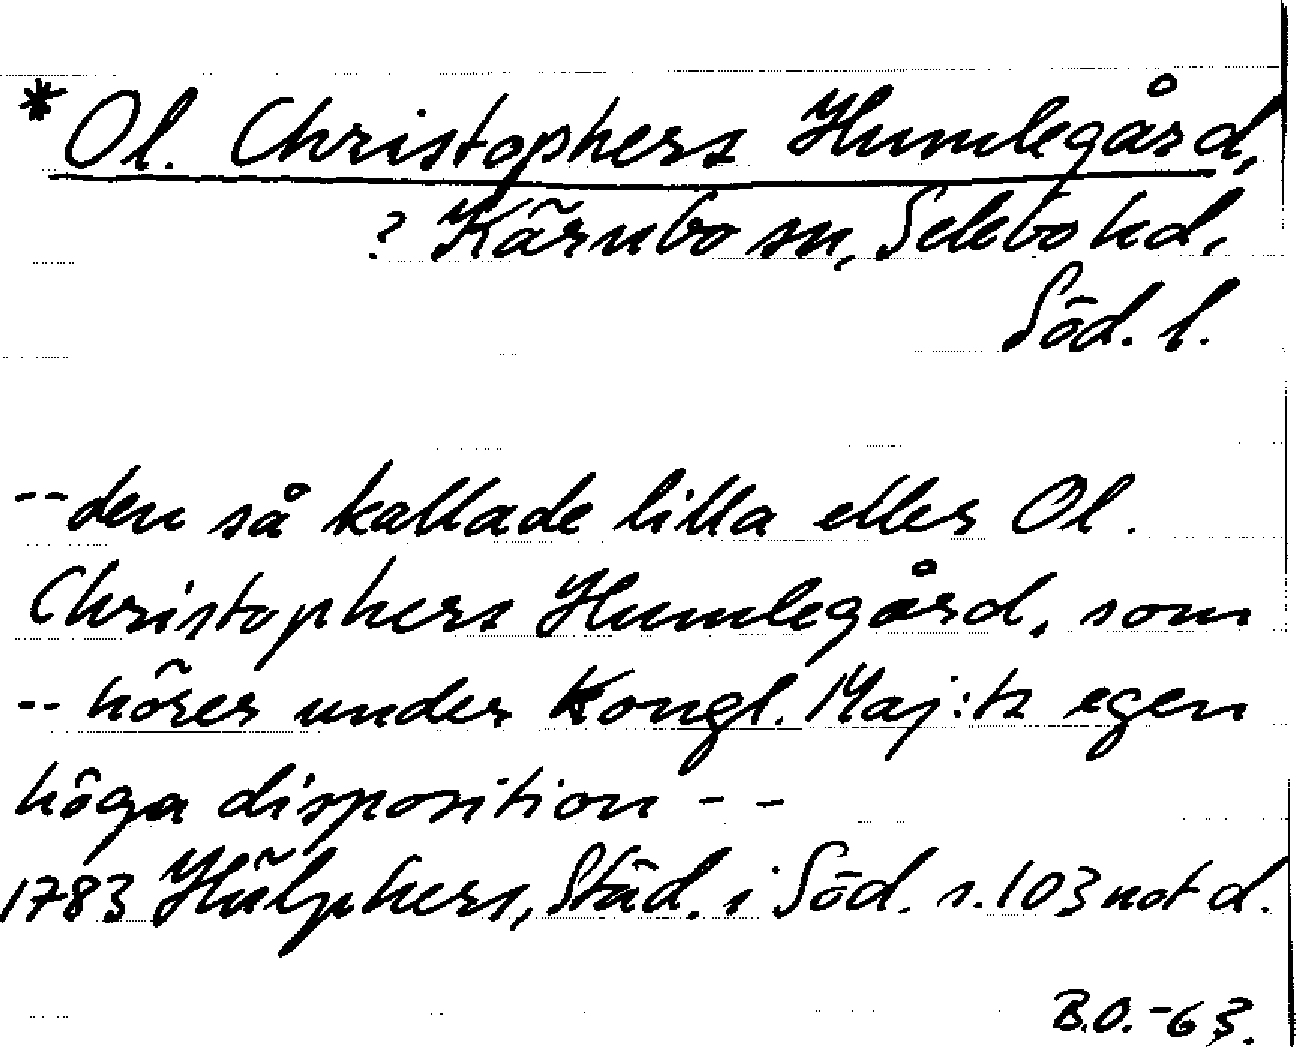 * Ol. Christophers Humlegård,
? Kärnbo sn, Selebo hd,
Söd. l.
-- den så kallade lilla eller Ol.
Christophers Humlegård, som
-- hörer under Kongl. Maj:tz egen
höga disposition - -
1783 Hülphers, Städ. i Söd. s. 103 not d.
B.O. -63.